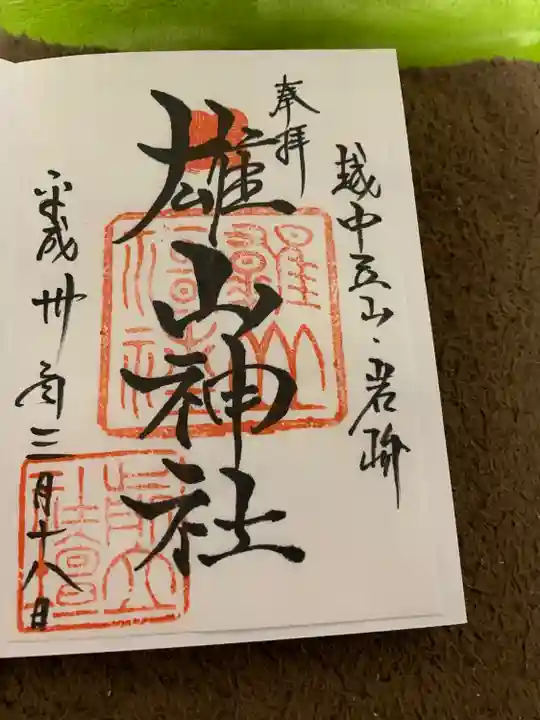 奉拝
越中立山・岩峅
雄山神社
平成卅年三月十八日